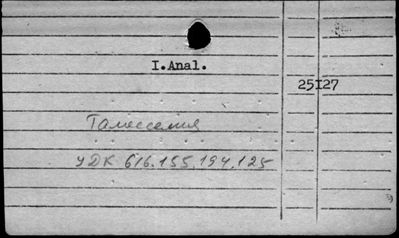 I.Anal.
25I27
Талассемия
УДК 616.155.194.125